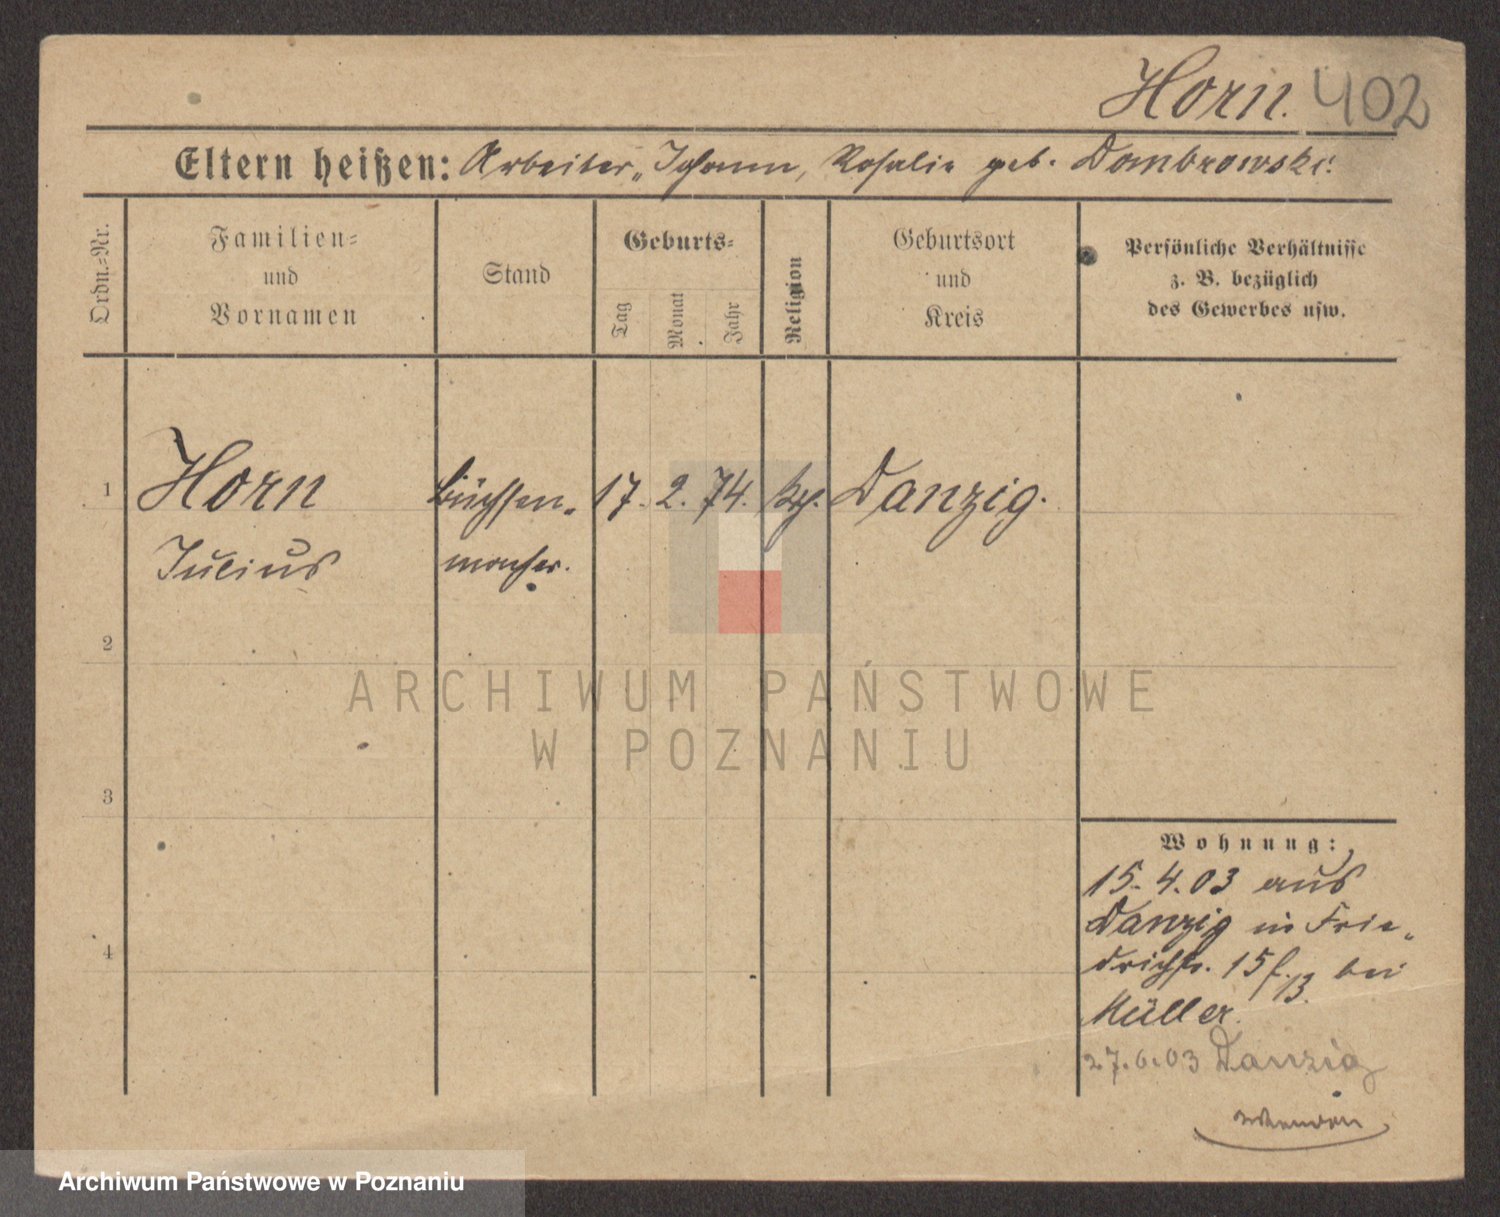 Horn. 402
Eltern heißen: Arbeiter Johann, Rosalie geb. Dombrowski.
Ordn.-Nr.
Familien-
und
Vornamen
Stand
Geburts-
Tag
Monat
Jahr
Religion
Geburtsort
und
Kreis
Persönliche Verhältnisse
z. B. bezüglich
des Gewerbes usw.
1 Horn Büchsen- 17. 2. 74. Danzig.
Julius macher.
2
ARCHIWUM PAŃSTWOWE
W POZNANIU
3
4
Wohnung:
15.4.03 aus
Danzig in Frie-
drichstr. 15 bei
Müller.
27.6.03 Danzig
Archiwum Państwowe w Poznaniu